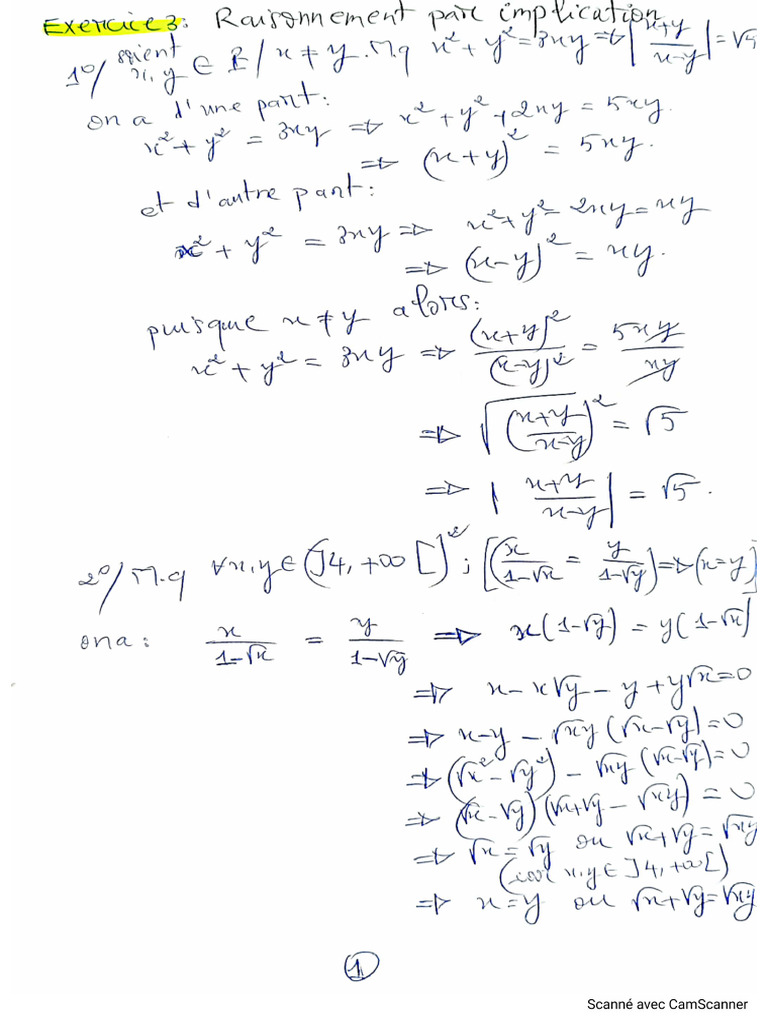 Exercice 3: Raisonnement parc implication
1°/ soient x, y ∈ ℝ / x ≠ y. M.q x² + y² = 3xy ⇒ |(x+y)/(x-y)| = √5
on a d'une part:
x² + y² = 3xy ⇒ x² + y² + 2xy = 5xy.
⇒ (x+y)² = 5xy.
et d'autre part:
x² + y² = 3xy ⇒ x² + y² - 2xy = xy
⇒ (x-y)² = xy.
puisque x ≠ y alors:
x² + y² = 3xy ⇒ (x+y)²/(x-y)² = 5xy/xy
⇒ √((x+y)/(x-y))² = √5
⇒ |(x+y)/(x-y)| = √5.
2°/ M.q ∀x,y ∈ (]4, +∞[)²; [(x/(1-√x) = y/(1-√y)) ⇒ (x=y)]
on a: x/(1-√x) = y/(1-√y) ⇒ x(1-√y) = y(1-√x)
⇒ x - x√y - y + y√x = 0
⇒ x-y - √xy (√x-√y) = 0
⇒ (√x² - √y²) - √xy (√x-√y) = 0
⇒ (√x-√y)(√x+√y - √xy) = 0
⇒ √x = √y ou √x+√y = √xy
(car x,y ∈ ]4, +∞[)
⇒ x = y ou √x+√y = √xy
1
Scanné avec CamScanner